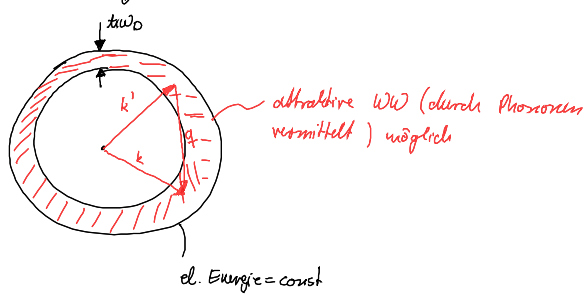 ħω_D
k'
attraktive WW (durch Phononen
vermittelt) möglich
q
k
el. Energie = const